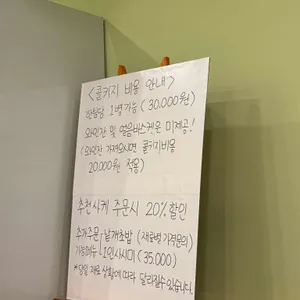 <콜키지 비용 안내>
한팀당 1병가능 (30,000원)
와인잔 및 얼음버스켓은 미제공!
(와인잔 가져오시면 콜키지비용
20,000원 적용)
추천사케 주문시 20% 할인
추가주문 - 낱개초밥 (재료별 가격문의)
가능메뉴 1인사시미 (35,000)
*당일 재료 상황에 따라 달라질수있습니다.